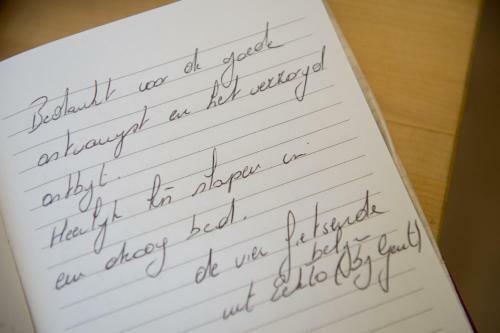 Bedankt voor de goede
ontvangst en het verzorgd
ontbyt.
Heerlyk slapen in
een droog bed.
de vier fietsende
belg
uit Eeklo (By Gent)